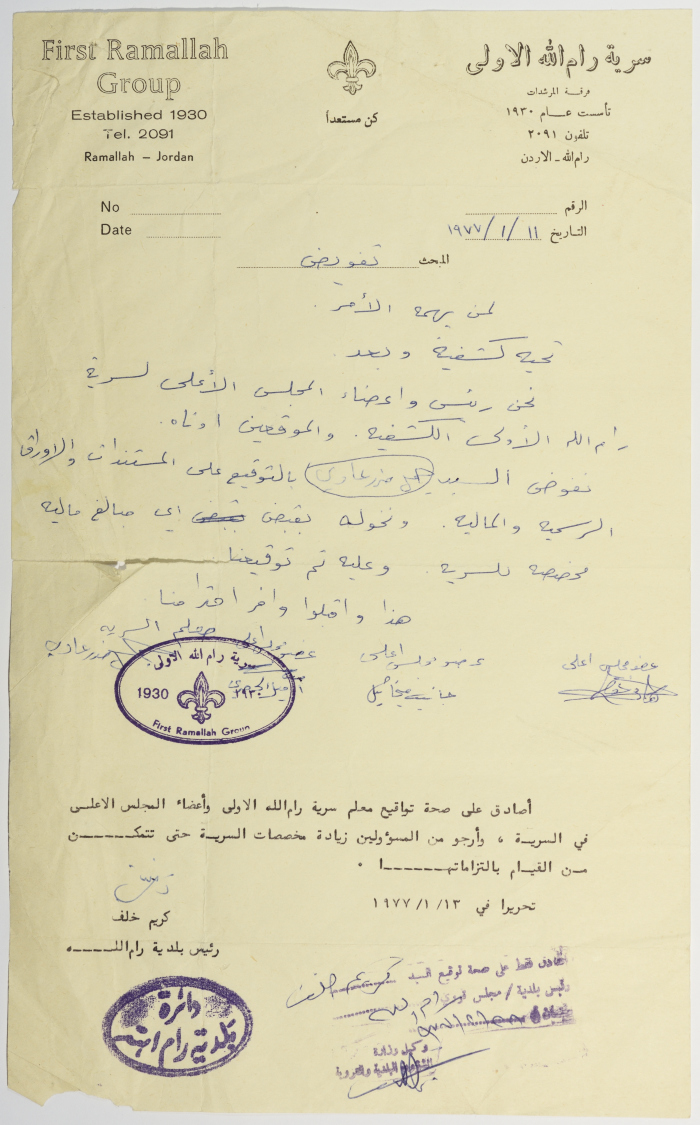 First Ramallah
Group
Established 1930
Tel. 2091
Ramallah – Jordan
كن مستعداً
سرية رام الله الاولى
فرقة المرشدات
تأسست عام ١٩٣٠
تلفون ٢٠٩١
رام الله - الاردن
No
Date
الرقم
التاريخ ١١ / ١ / ١٩٧٧
المبحث تفويض
لمن يهمه الأمر .
تحية كشفية وبعد .
نحن رئيس واعضاء المجلس الأعلى لسرية
رام الله الأولى الكشفية . والموقعين ادناه .
نفوض السيد بالتوقيع على المستندات والاوراق
الرسمية والمالية . ونخوله بقبض اي مبالغ ماليه
مخصصه للسرية . وعليه تم توقيعنا
هذا واقبلوا وافر احترامنا .
معلم السرية
عضو مجلس اعلى
عضو مجلس اعلى
عضو مجلس اعلى
سرية رام الله الاولى
1930 ١٩٣٠
First Ramallah Group
أصادق على صحة تواقيع معلم سرية رام الله الاولى وأعضاء المجلس الاعلى
في السرية ، وأرجو من المسؤولين زيادة مخصصات السرية حتى تتمكن
من القيام بالتزاماتها .
تحريرا في ١٣ / ١ / ١٩٧٧
كريم خلف
رئيس بلدية رام الله
دائرة
بلدية رام الله
نصادق فقط على صحة توقيع السيد كريم خلف
رئيس بلدية / مجلس قروي رام الله
وكيل وزارة
الشؤون البلدية والقروية